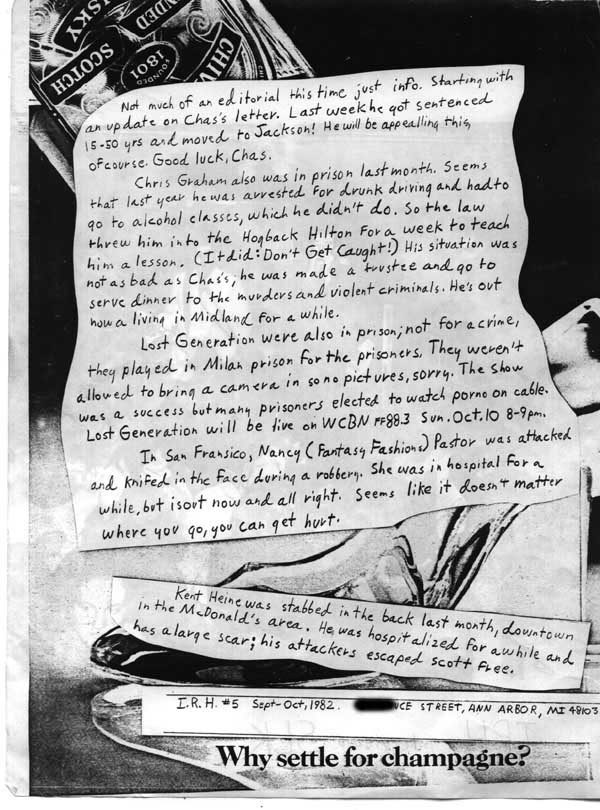 CHIV
NDED
WSKY
SCOTCH
FOUNDED
1801
Not much of an editorial this time just info. Starting with
an update on Chas's letter. Last week he got sentenced
15-50 yrs and moved to Jackson! He will be appealling this,
of course. Good luck, Chas.
Chris Graham also was in prison last month. Seems
that last year he was arrested for drunk driving and had to
go to alcohol classes, which he didn't do. So the law
threw him into the Hogback Hilton for a week to teach
him a lesson. (It did: Don't Get Caught!) His situation was
not as bad as Chas's; he was made a trustee and go to
serve dinner to the murders and violent criminals. He's out
now a living in Midland for a while.
Lost Generation were also in prison; not for a crime,
they played in Milan prison for the prisoners. They weren't
allowed to bring a camera in so no pictures, sorry. The show
was a success but many prisoners elected to watch porno on cable.
Lost Generation will be live on WCBN FF88.3 Sun. Oct. 10 8-9pm.
In San Fransico, Nancy (Fantasy Fashions) Pastor was attacked
and knifed in the face during a robbery. She was in hospital for a
while, but is out now and all right. Seems like it doesn't matter
where you go, you can get hurt.
Kent Heine was stabbed in the back last month, downtown
in the McDonald's area. He was hospitalized for awhile and
has a large scar; his attackers escaped scott free.
I.R.H. #5 Sept-Oct, 1982. UCE STREET, ANN ARBOR, MI 48103
Why settle for champagne?